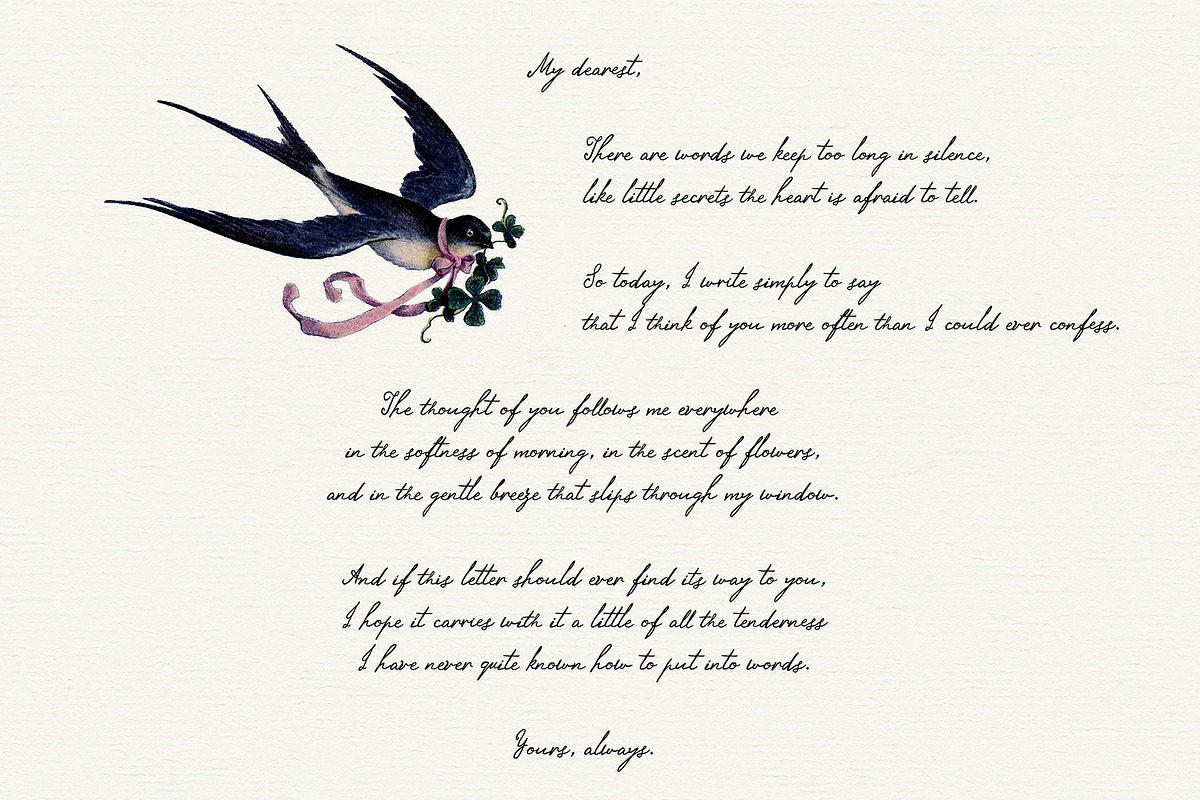 My dearest,
There are words we keep too long in silence,
like little secrets the heart is afraid to tell.
So today, I write simply to say
that I think of you more often than I could ever confess.
The thought of you follows me everywhere
in the softness of morning, in the scent of flowers,
and in the gentle breeze that slips through my window.
And if this letter should ever find its way to you,
I hope it carries with it a little of all the tenderness
I have never quite known how to put into words.
Yours, always.